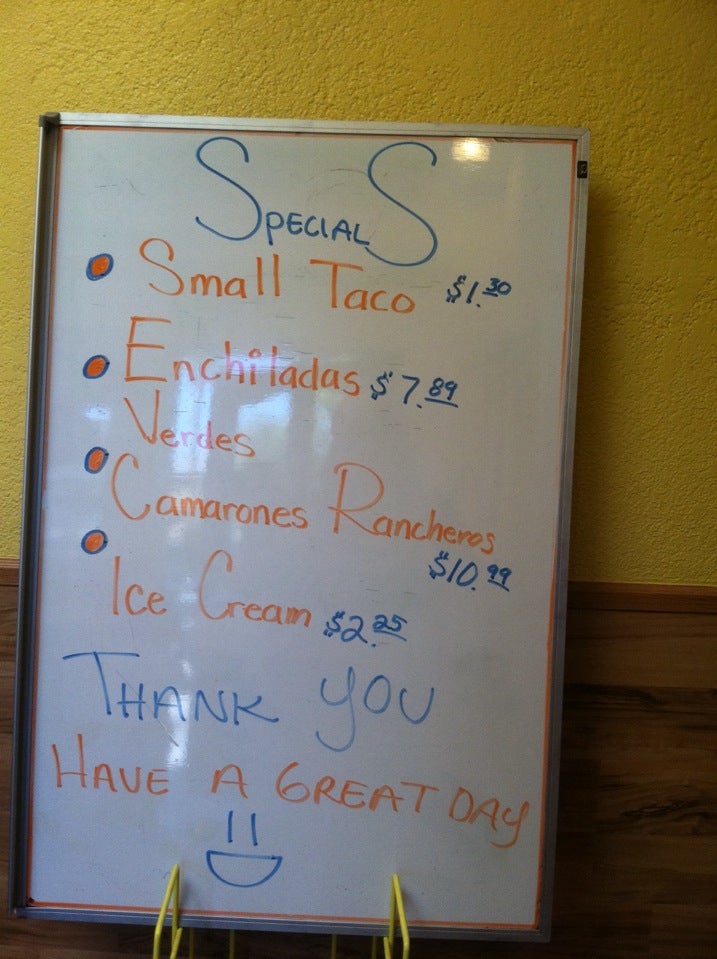 SPECIALS
Small Taco $1.30
Enchiladas $7.89
Verdes
Camarones Rancheros
$10.99
Ice Cream $2.25
THANK YOU
HAVE A GREAT DAY